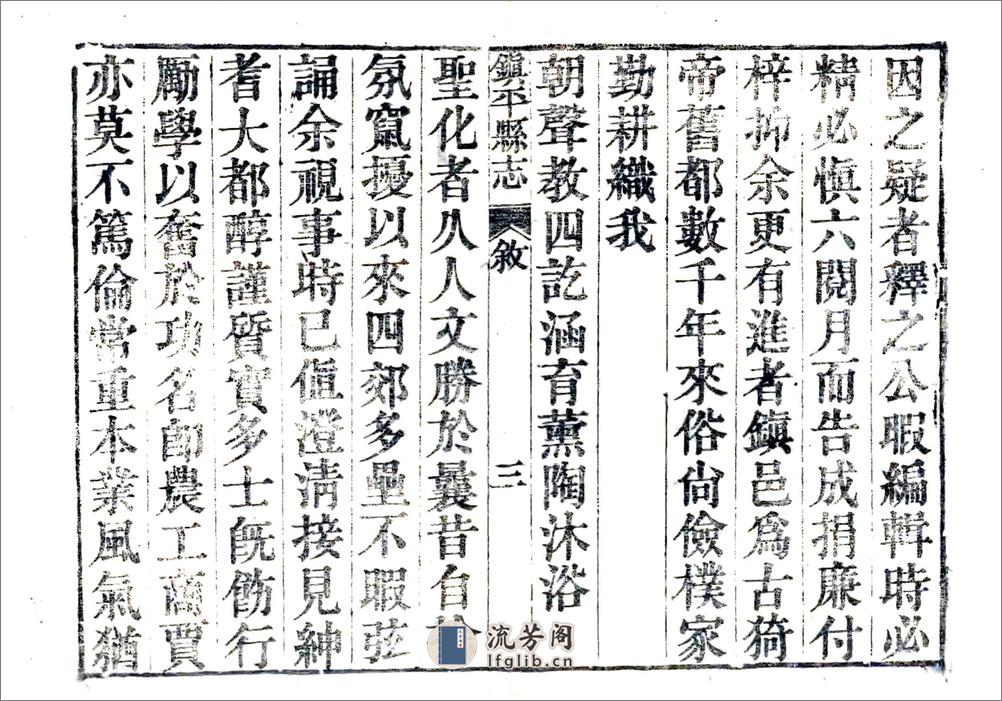 因之疑者釋之公暇編輯時必
精必慎六閱月而告成捐廉付
梓抑余更有進者鎮邑爲古猗
帝舊都數千年來俗尙儉樸家
勤耕織我
朝聲教四訖涵育薰陶沐浴
鎮平縣志 敘 三
聖化者久人文勝於曩昔自
氛竄擾以來四郊多壘不暇弦
誦余視事時已値澄淸接見紳
耆大都醇謹質實多士旣飭行
勵學以奮於功名卽農工商賈
亦莫不篤倫常重本業風氣猶
流芳阁
lfglib.cn